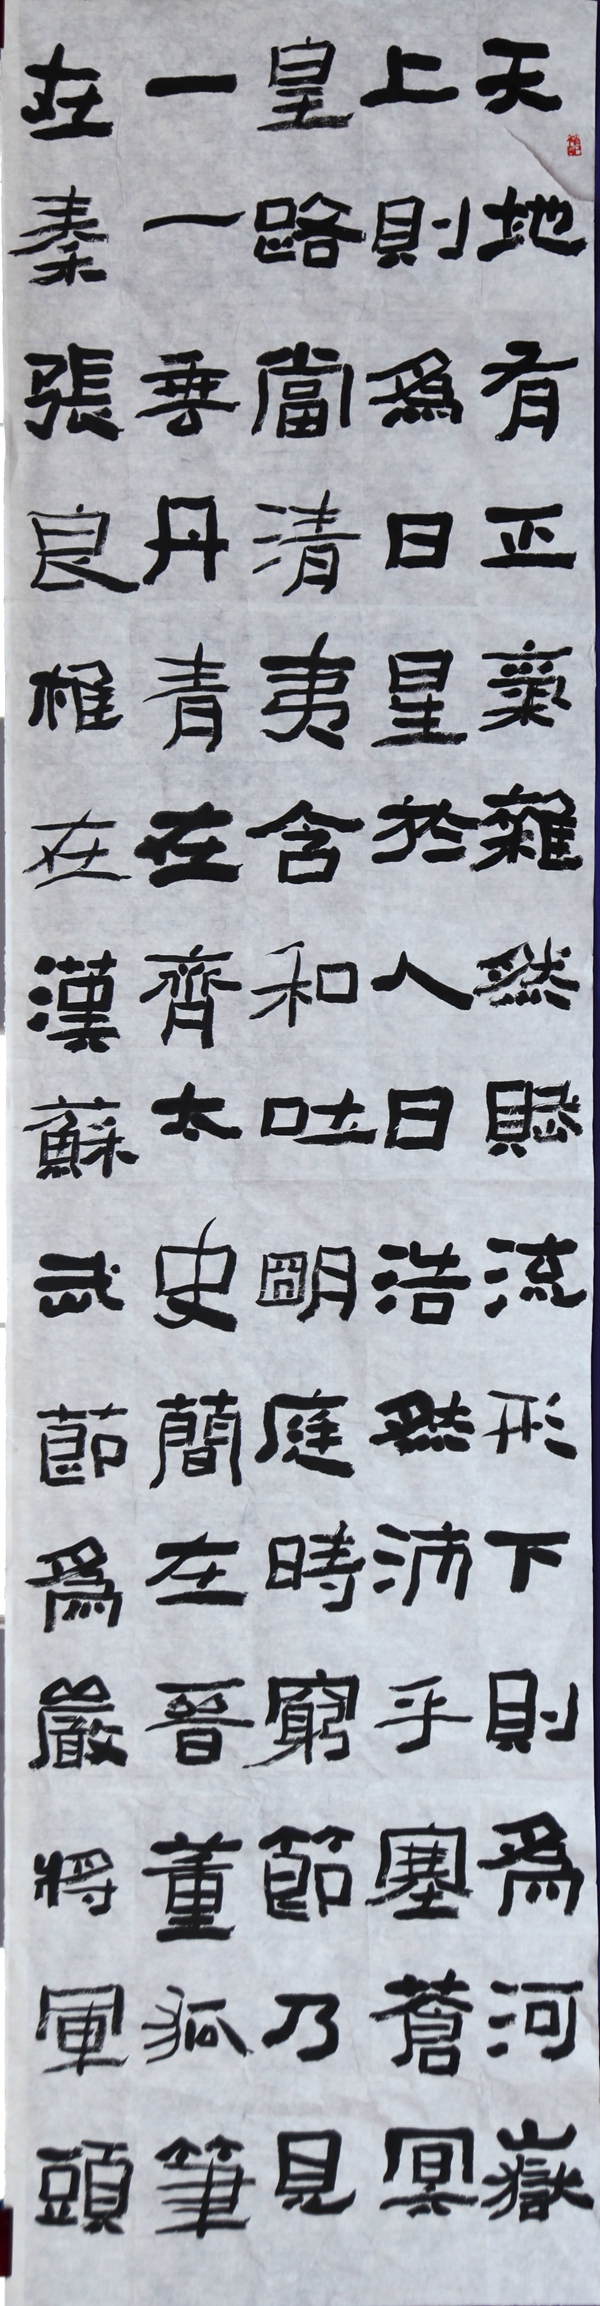 天地有正氣雜然賦流形下則為河嶽
上則為日星於人曰浩然沛乎塞蒼冥
皇路當清夷含和吐明庭時窮節乃見
一一垂丹青在齊太史簡在晉董狐筆
在秦張良椎在漢蘇武節為嚴將軍頭